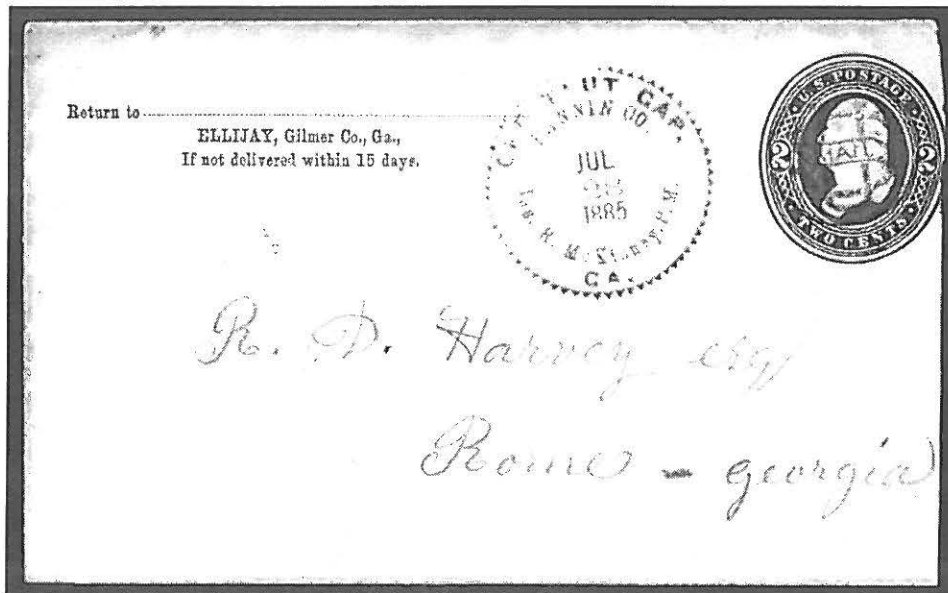 Return to
ELLIJAY, Gilmer Co., Ga.,
If not delivered within 15 days.
GAP.
FANNIN CO.
JUL
1885
P. M.
GA.
U.S. POSTAGE
2 2
TWO CENTS
R. D. Harvey esq
Rome - georgia